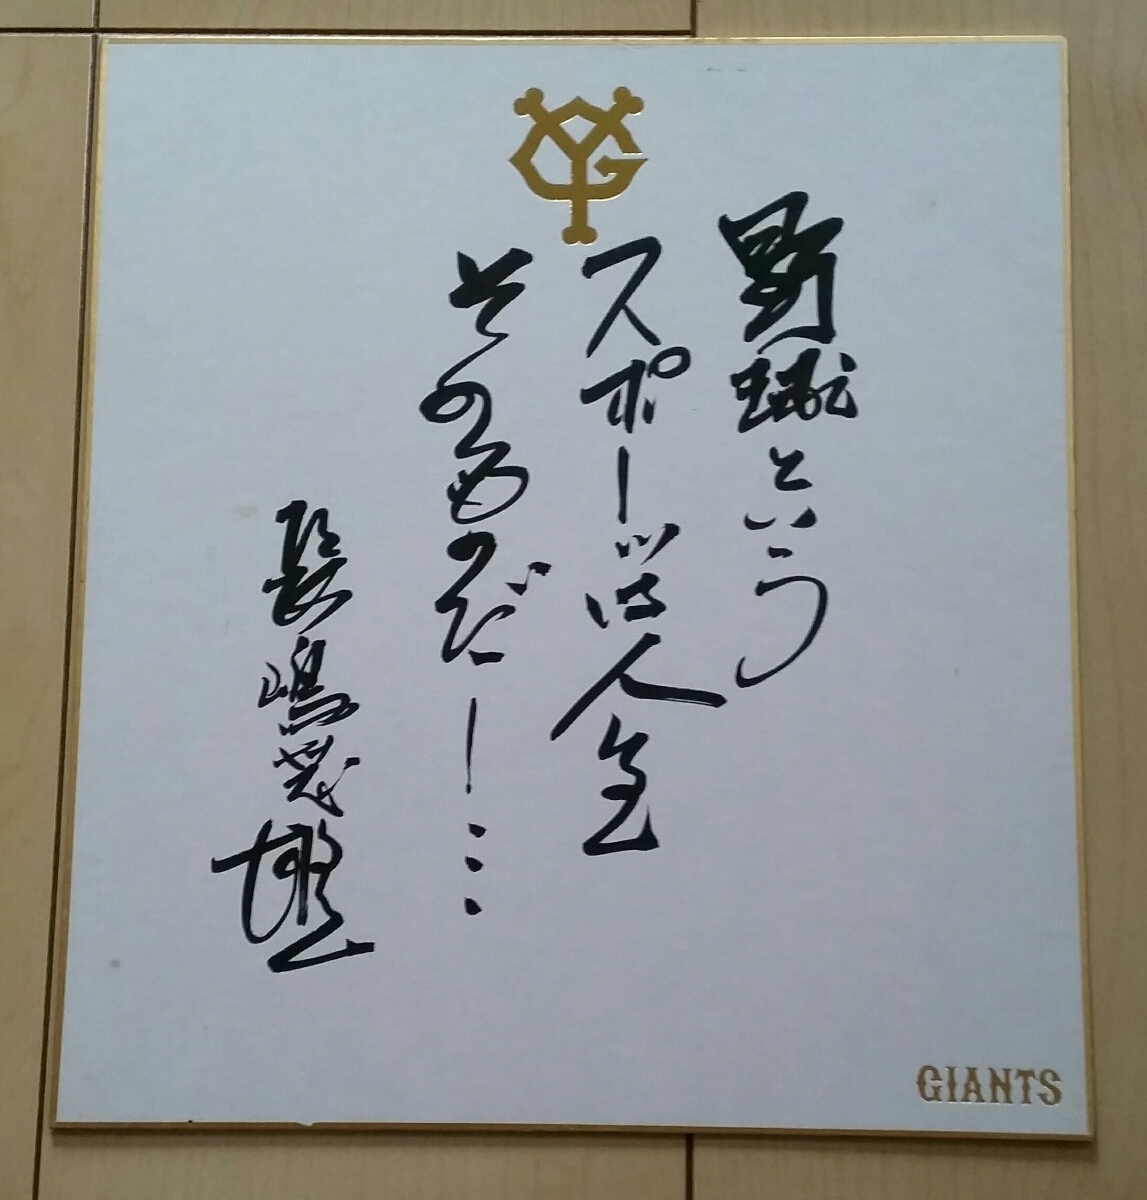 野球という
スポーツは人生
そのものだー…
長嶋茂雄
YG
GIANTS